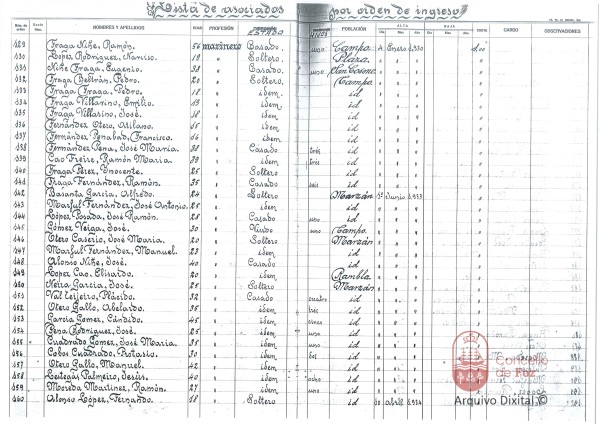 Lista de asociados por orden de ingreso
NOMBRES Y APELLIDOS PROFESIÓN ESTADO POBLACIÓN ALTA BAJA CUOTA CARGO OBSERVACIONES
629 Fraga Niñe, Ramón. 56 marinero Casado uno Campo 4 Enero 1.930 1,00
630 López Rodríguez, Narciso. 19 " Soltero Plaza
631 Niñe Fraga, Eugenio. 33 " Casado uno San Cosme
632 Fraga Beltrán, Pedro. 20 " Soltero Campo
633 Fraga Fraga, Pedro. 18 " idem id
634 Fraga Villarino, Emilio. 19 " idem id
635 Fraga Villarino, José. 18 " idem id
636 Fernández Otero, 15 " idem id
637 Fernández Penabad, Francisco. 16 " idem id
638 Fernández Pena, José María. 38 " Casado tres id
639 Cao Freire, Ramón María. 39 " idem tres id
640 Fraga Pérez, Ynocente. 25 " Soltero id
641 Fraga Fernández, Ramón. 35 " Casado seis id
642 Basanta García, Alfredo. 24 " Soltero Marzán 1º Junio 1.933
643 Marful Fernández, José Antonio. 25 " idem id
644 López Posada, José Ramón. 28 " Casado uno id
645 Gómez Veiga, José. 30 " Viudo uno Campo
646 Otero Caserio, José María. 20 " Soltero Marzán
647 Marful Fernández, Manuel. 23 " idem id
648 Alonso Niñe, José. 40 " Casado id
649 López Cao, Elisardo. 20 " idem Rambla
650 Neira García, José. 25 " Soltero Marzán
651 Val Teijeiro, Plácido. 32 " Casado cuatro id
652 Otero Gallo, Abelardo. 35 " idem tres id
653 García Gómez, Cándido. 45 " idem cinco id
654 Pena Rodríguez, José. 25 " idem uno id
655 Cuadrado Gómez, José María. 35 " idem uno id
656 Cobos Cuadrado, Protasio. 30 " idem id
657 Otero Gallo, Manuel. 42 " idem id
658 Palmeiro, Jesús. 40 " idem ocho id
659 Moreda Martínez, Ramón. 27 " idem uno id
660 Alonso López, Fernando. 18 " Soltero id 30 abril 1.934
Concello de Foz
Arquivo Dixital ©